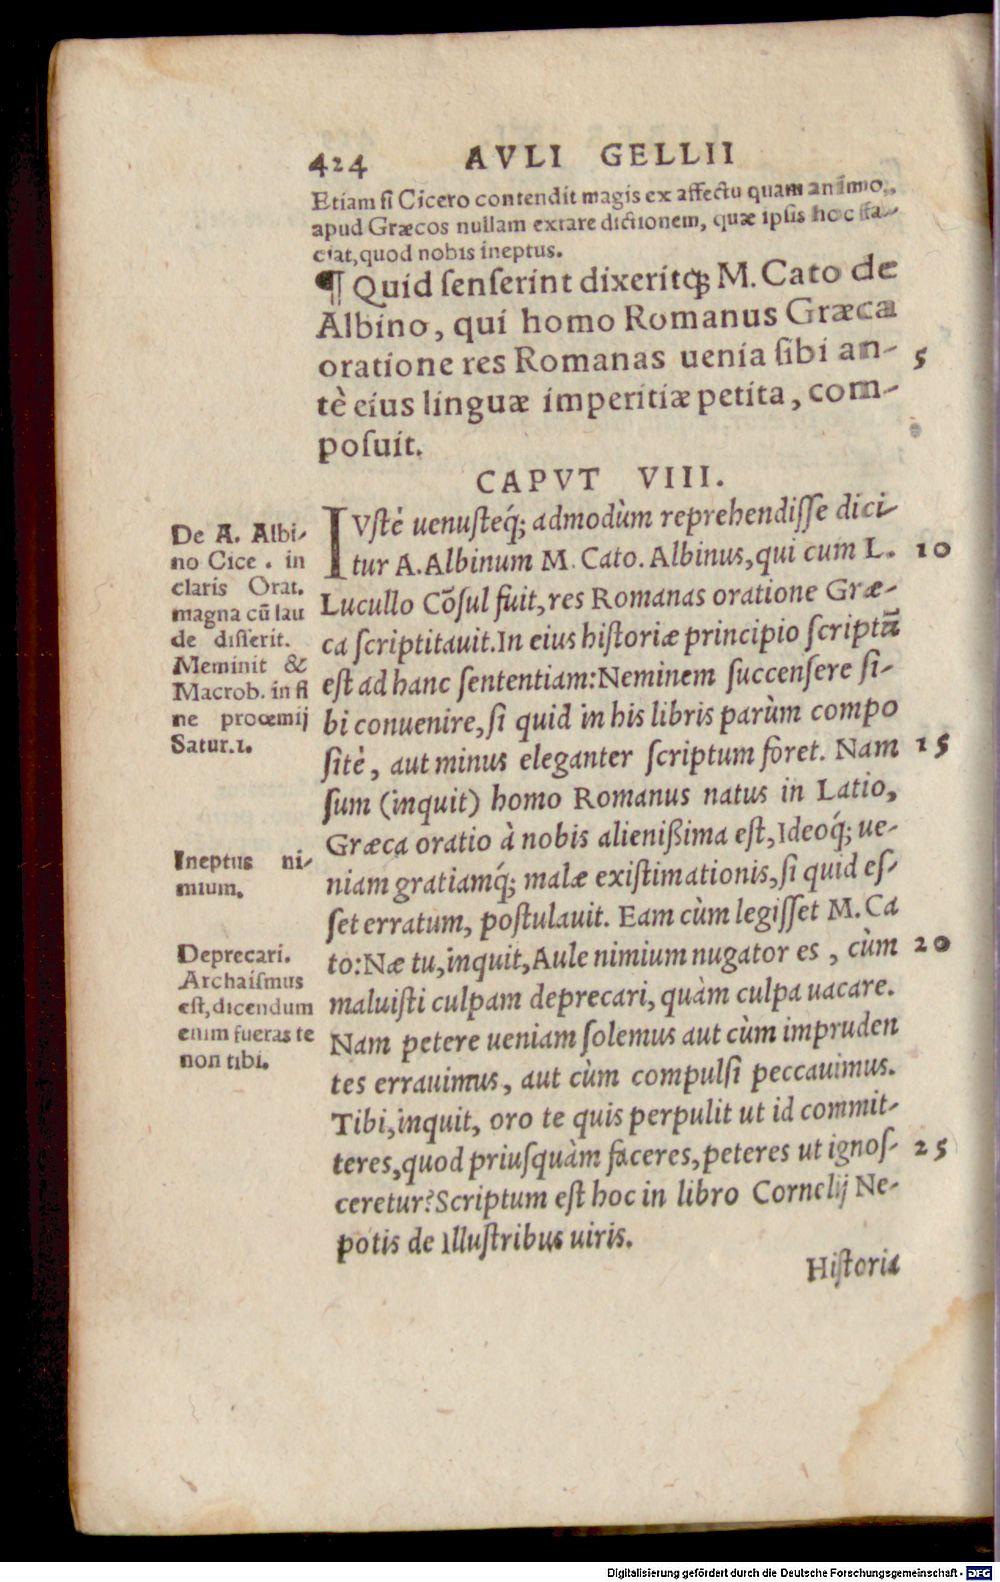 424 AVLI GELLII
Etiam si Cicero contendit magis ex affectu quam animo,
apud Græcos nullam extare dictionem, quæ ipsis hoc ffa-
ciat, quod nobis ineptus.
¶ Quid senserint dixeritq́; M. Cato de
Albino, qui homo Romanus Græca
oratione res Romanas uenia sibi an-
5
tè eius linguæ imperitiæ petita, com-
posuit.
CAPVT VIII.
IVstè uenusteq́; admodùm reprehendisse dici-
tur A. Albinum M. Cato. Albinus, qui cum L.
10
Lucullo Cõsul fuit, res Romanas oratione Græ-
ca scriptitauit. In eius historiæ principio scriptũ
est ad hanc sententiam: Neminem succensere si-
bi conuenire, si quid in his libris parùm compo
sitè, aut minus eleganter scriptum foret. Nam
15
sum (inquit) homo Romanus natus in Latio,
Græca oratio à nobis alienißima est, Ideoq́; ue-
niam gratiamq́; malæ existimationis, si quid es-
set erratum, postulauit. Eam cùm legisset M. Ca
to: Næ tu, inquit, Aule nimium nugator es, cùm
20
maluisti culpam deprecari, quàm culpa uacare.
Nam petere ueniam solemus aut cùm impruden
tes errauimus, aut cùm compulsi peccauimus.
Tibi, inquit, oro te quis perpulit ut id commit-
teres, quod priusquàm faceres, peteres ut ignos-
25
ceretur? Scriptum est hoc in libro Cornelij Ne-
potis de Illustribus uiris.
Historia
De A. Albi-
no Cice. in
claris Orat.
magna cũ lau
de disserit.
Meminit &
Macrob. in fi
ne proœmij
Satur.1.
Ineptus ni-
mium.
Deprecari.
Archaismus
est, dicendum
enim fueras te
non tibi.
Digitalisierung gefördert durch die Deutsche Forschungsgemeinschaft - DFG